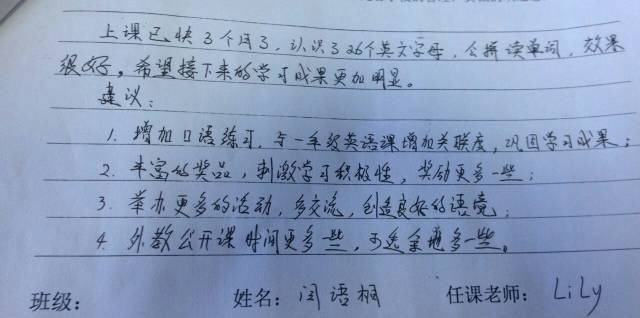 上课已快3个月了,认识了26个英文字母,会拼读单词,效果
很好。希望接下来的学习成果更加明显。
建议:
1. 增加口语练习,与一年级英语课增加关联度,巩固学习成果;
2. 丰富的奖品,刺激学习积极性,奖励更多一些;
3. 举办更多的活动,多交流,创造良好的语境;
4. 外教公开课时间更多一些,可选余地多一些。
班级: 姓名:闫语桐 任课老师:LiLy